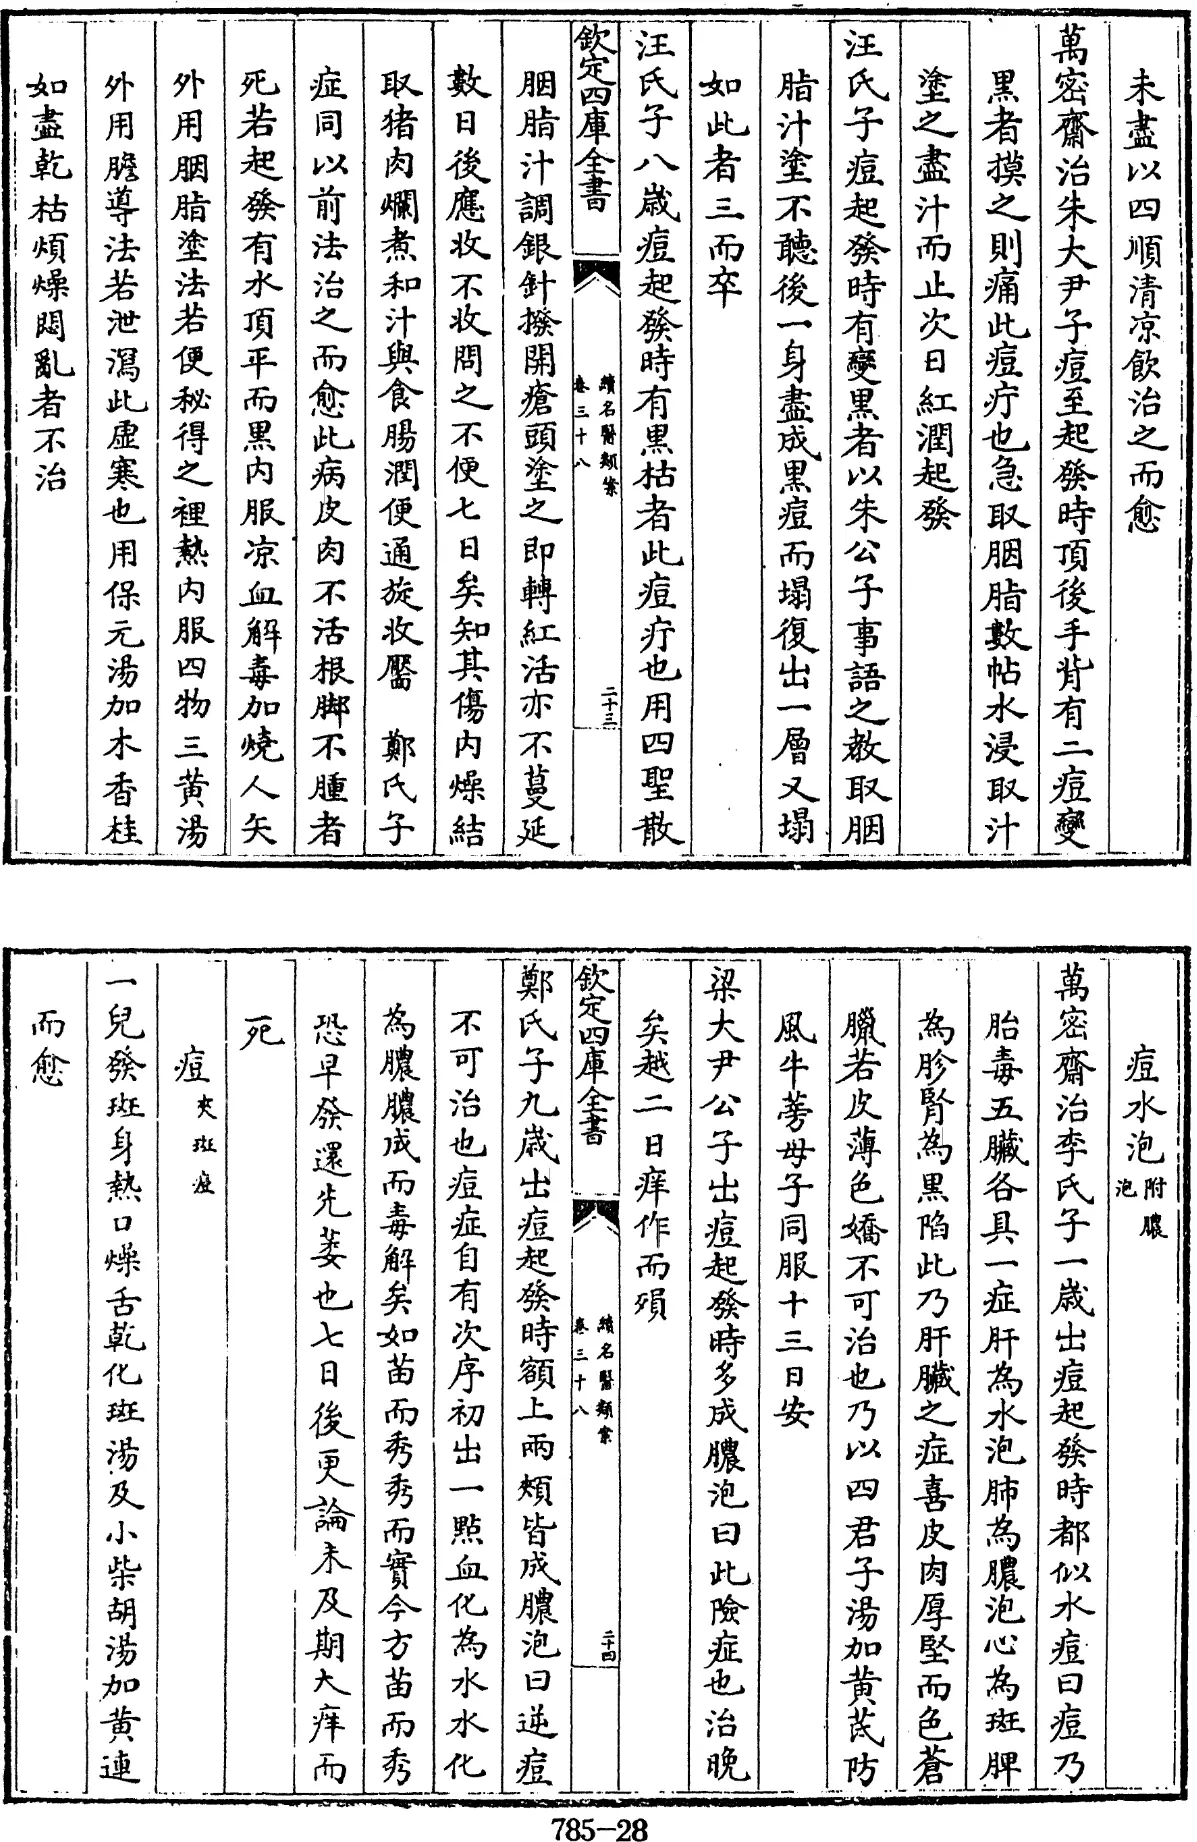 未盡以四順清凉飲治之而愈
萬密齋治朱大尹子痘至起發時頂後手背有二痘變
黑者摸之則痛此痘疔也急取胭脂數帖水浸取汁
塗之盡汁而止次日紅潤起發
汪氏子痘起發時有變黑者以朱公子事語之教取胭
脂汁塗不聽後一身盡成黒痘而塌復出一層又塌
如此者三而卒
汪氏子八歲痘起發時有黒枯者此痘疔也用四聖散
欽定四庫全書
續名醫類案
卷三十八
二十三
胭脂汁調銀針撥開瘡頭塗之即轉紅活亦不蔓延
數日後應收不收問之不便七日矣知其傷内燥結
取猪肉爛煮和汁與食腸潤便通旋收靨 鄭氏子
症同以前法治之而愈此病皮肉不活根脚不腫者
死若起發有水頂平而黒内服凉血解毒加燒人矢
外用胭脂塗法若便秘得之裡熱内服四物三黄湯
外用膽導法若泄瀉此虛寒也用保元湯加木香桂
如盡乾枯煩燥悶亂者不治
痘水泡附膿泡
萬密齋治李氏子一歲出痘起發時都似水痘曰痘乃
胎毒五臟各具一症肝為水泡肺為膿泡心為斑脾
為胗腎為黒陷此乃肝臟之症喜皮肉厚堅而色蒼
臘若皮薄色嬌不可治也乃以四君子湯加黄芪防
風牛蒡母子同服十三日安
梁大尹公子出痘起發時多成膿泡曰此險症也治晚
矣越二日痒作而殞
欽定四庫全書
續名醫類案
卷三十八
二十四
鄭氏子九歲出痘起發時額上兩頰皆成膿泡曰逆痘
不可治也痘症自有次序初出一點血化為水水化
為膿膿成而毒解矣如苗而秀秀而實今方苗而秀
恐早發還先萎也七日後更論未及期大痒而
死
痘夾斑疹
一兒發斑身熱口燥舌乾化斑湯及小柴胡湯加黄連
而愈
785-28